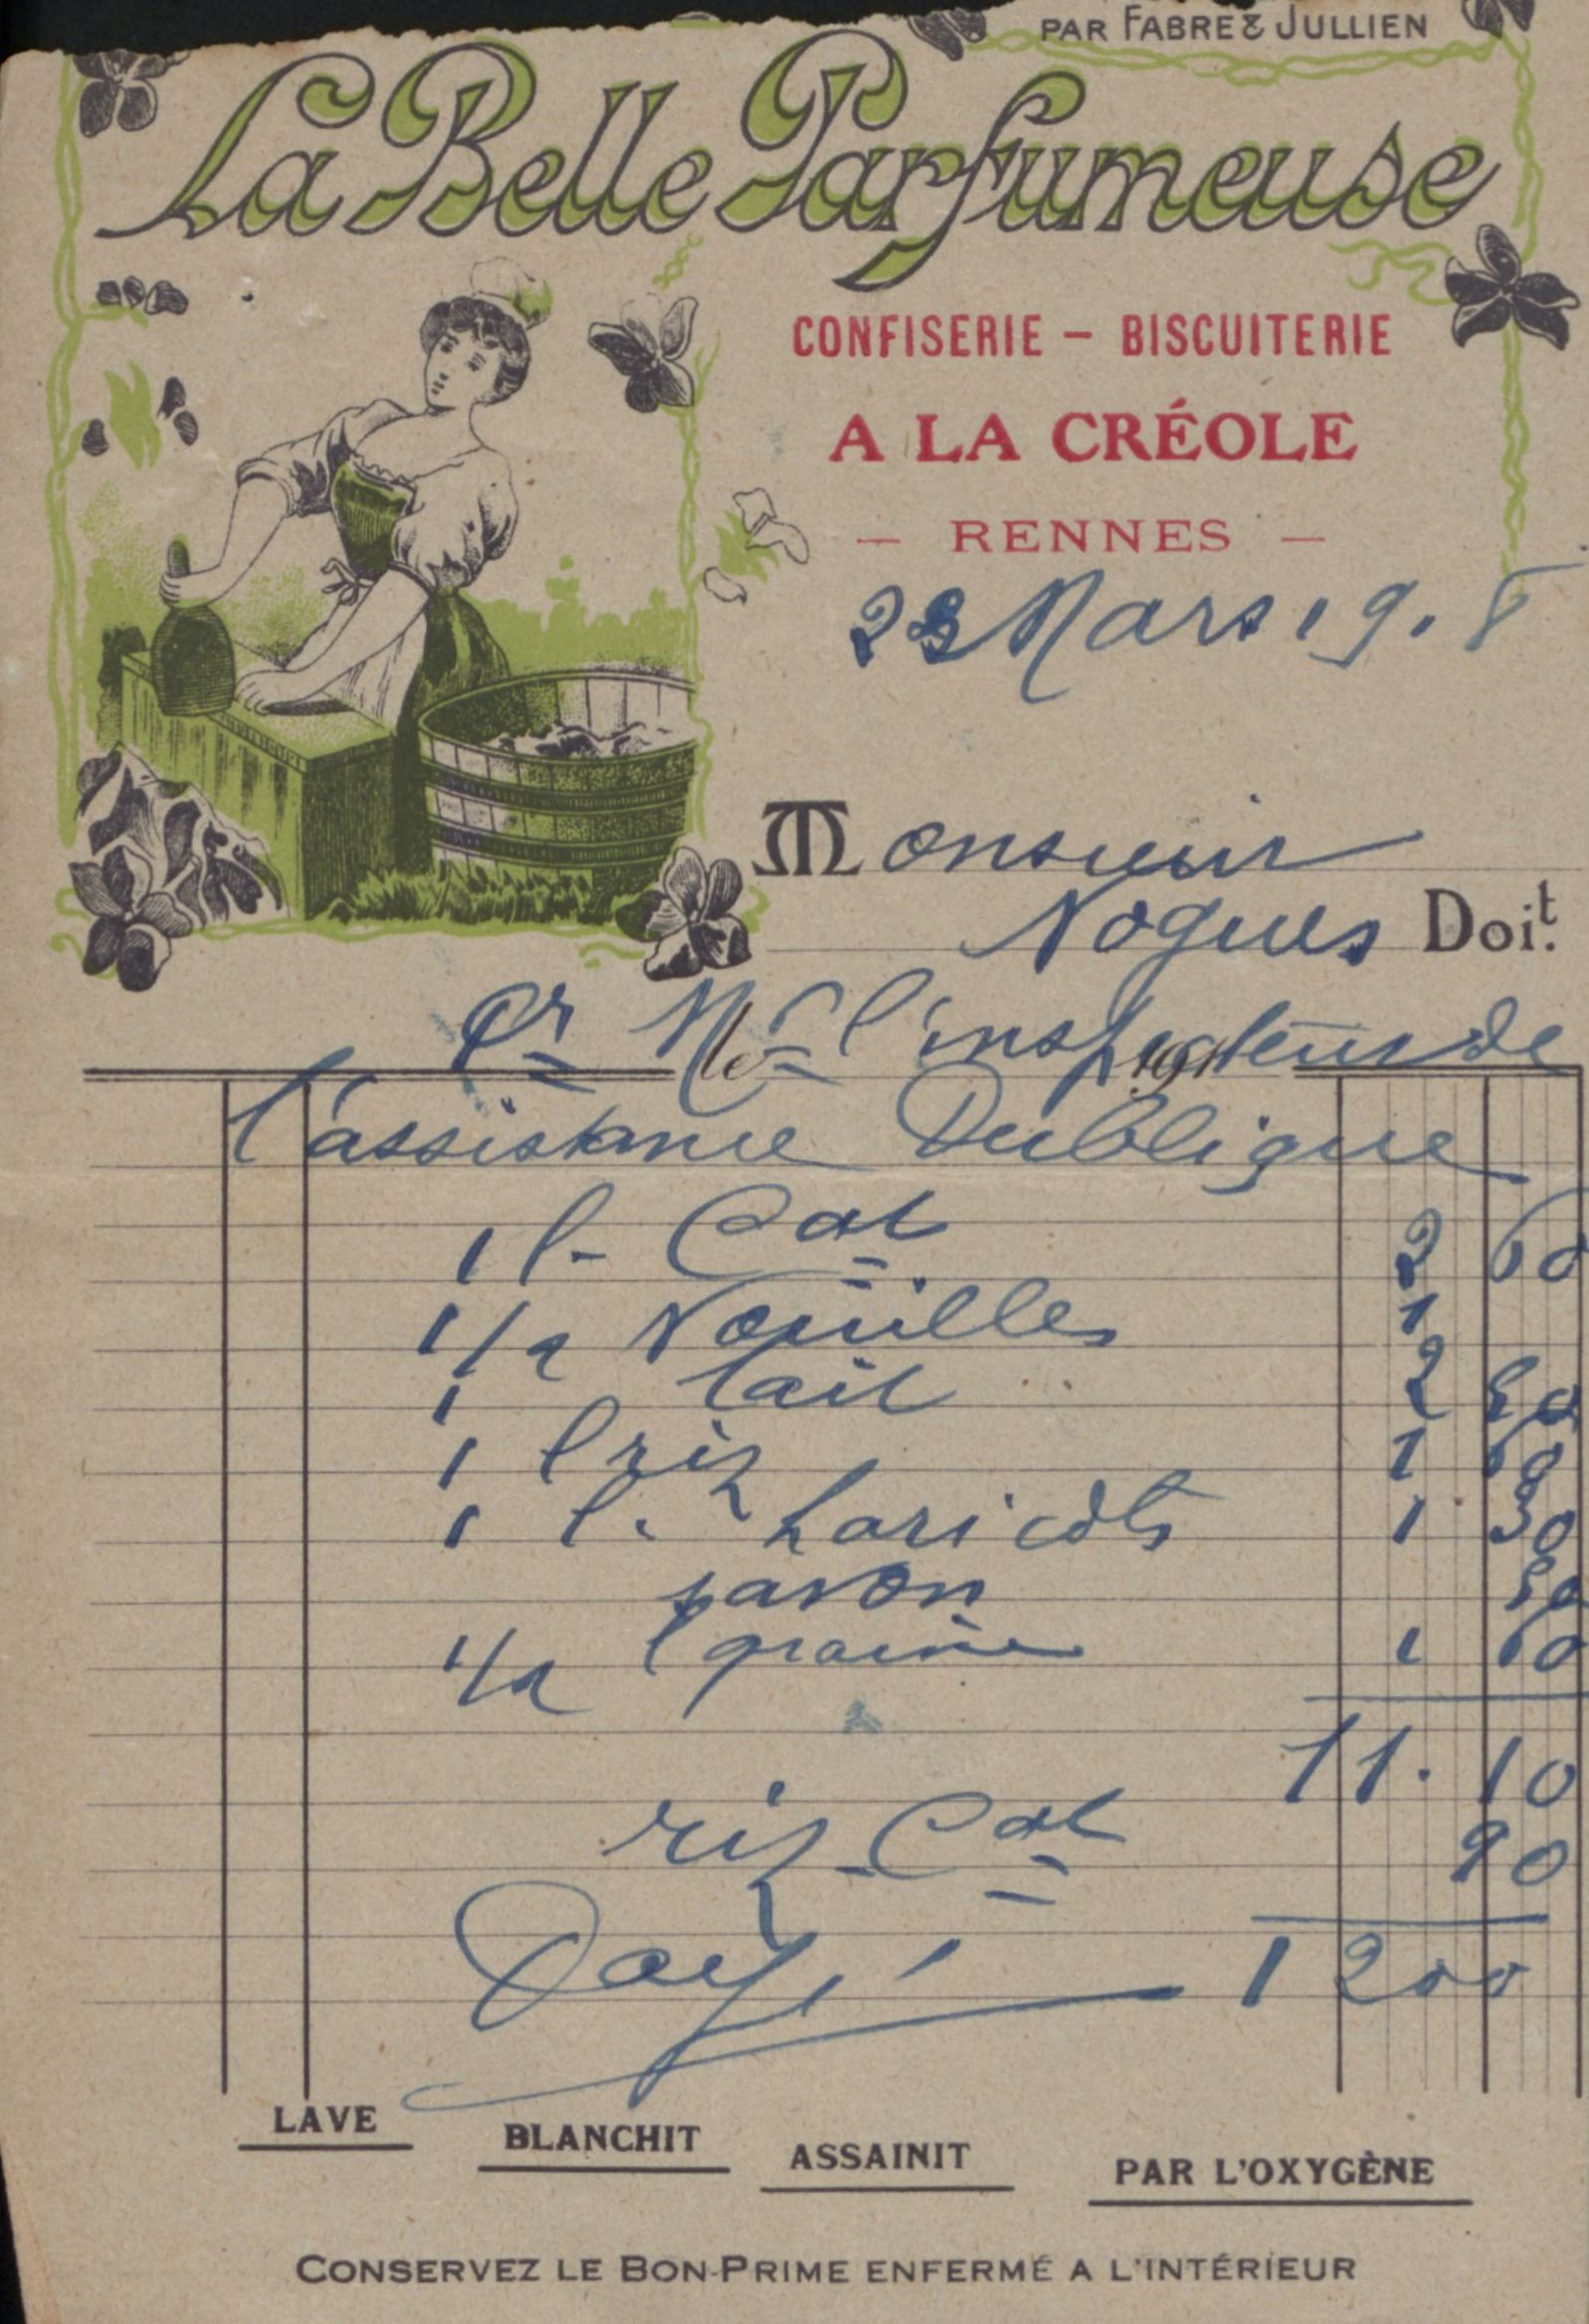 PAR FABRE & JULLIEN
La Belle Parfumeuse
CONFISERIE – BISCUITERIE
A LA CRÉOLE
– RENNES –
23 Mars 19.8
Monsieur
Nogues Doit.
Pr Mr l'inspecteur de
l'assistance Publique
1 l. Cat 2 60
1/2 Nouilles 1
1 lait 2 50
1 l riz 1 60
1 l. haricots 1 30
savon 50
1/2 l graine 1 60
11.10
riz Cat 90
Payé 1200
LAVE BLANCHIT ASSAINIT PAR L'OXYGÈNE
CONSERVEZ LE BON-PRIME ENFERMÉ A L'INTÉRIEUR